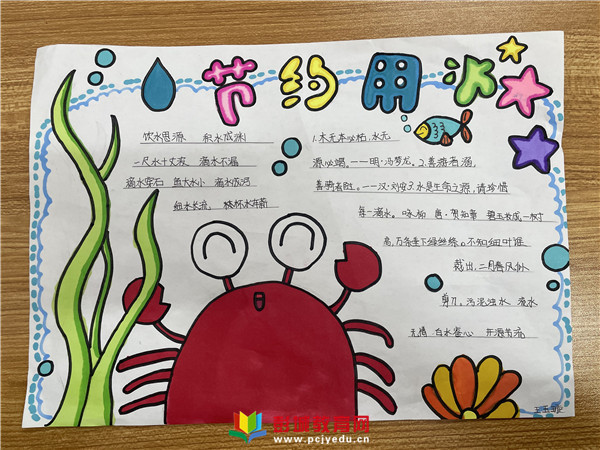 节约用水
饮水思源 积水成渊
一尺水十丈波 滴水不漏
滴水穿石 鱼大水小 滴水成河
细水长流 杯水车薪
1.木无本必枯,水无
源必竭。——明·冯梦龙。2.善游者溺,
善骑者堕。——汉·刘安3.水是生命之源,请珍惜
每一滴水。咏柳 唐·贺知章 碧玉妆成一树
高,万条垂下绿丝绦。不知细叶谁
裁出,二月春风似
剪刀。污泥浊水 流水
无情 白水鉴心 开源节流
教育网
www.pcjyedu.cn